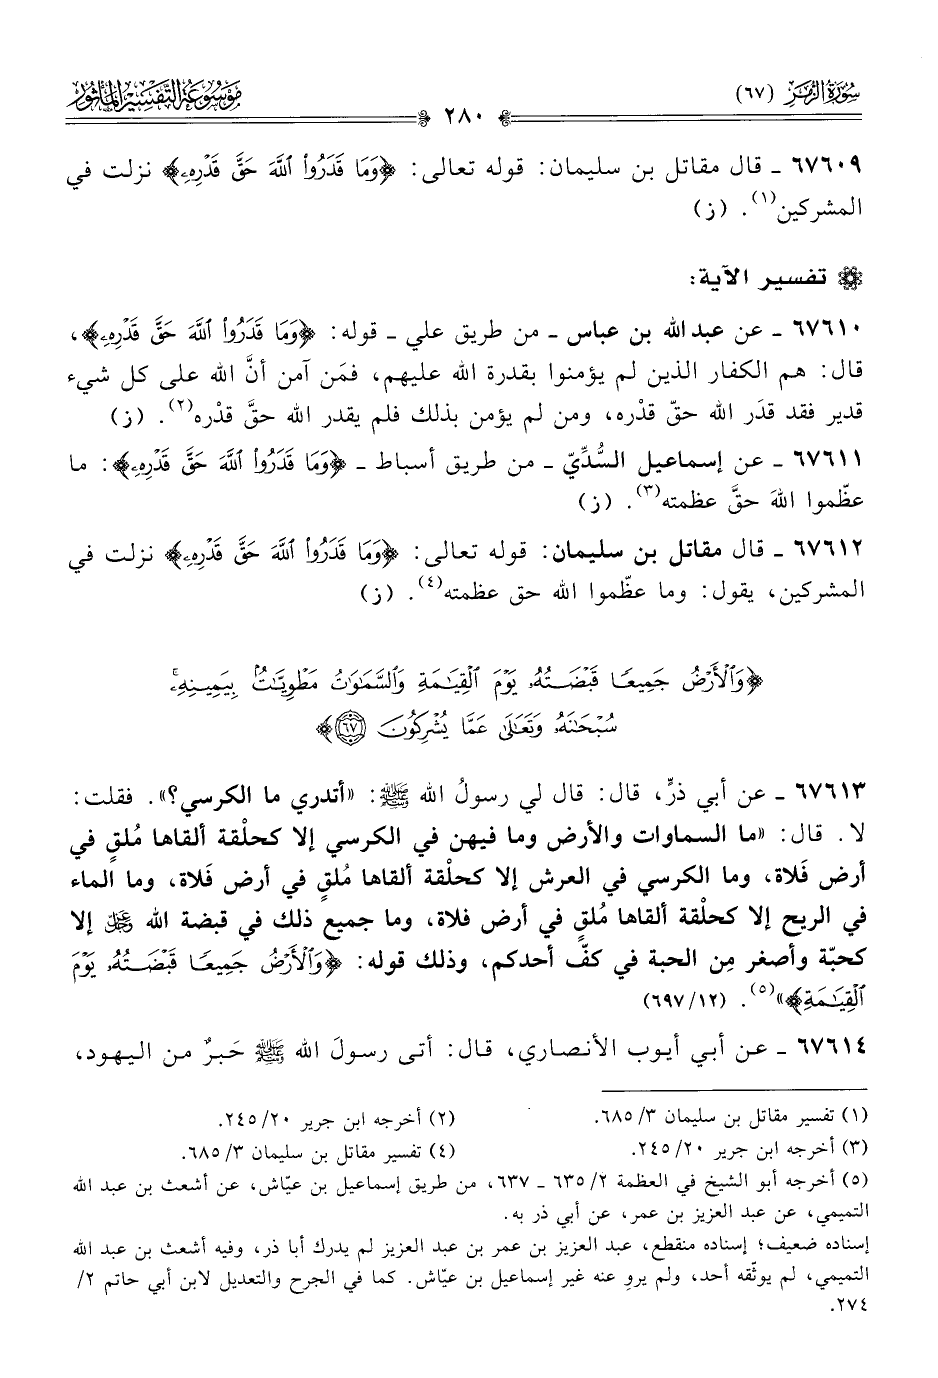 سُورَةُ الزُّمَرِ (٦٧)
٢٨٠
مَوْسُوعَةُ التَّفْسِيرِ المَأْثُورِ
٦٧٦٠٩ ـ قال مقاتل بن سليمان: قوله تعالى: ﴿وَمَا قَدَرُوا۟ ٱللَّهَ حَقَّ قَدْرِهِۦ﴾ نزلت في
المشركين(١). (ز)
تفسير الآية:
٦٧٦١٠ ـ عن عبد الله بن عباس ـ من طريق علي ـ قوله: ﴿وَمَا قَدَرُوا۟ ٱللَّهَ حَقَّ قَدْرِهِۦ﴾،
قال: هم الكفار الذين لم يؤمنوا بقدرة الله عليهم، فمَن آمن أنَّ الله على كل شيء
قدير فقد قدَر الله حقّ قدْره، ومن لم يؤمن بذلك فلم يقدر الله حقَّ قدْره(٢). (ز)
٦٧٦١١ ـ عن إسماعيل السُّدِّيّ ـ من طريق أسباط ـ ﴿وَمَا قَدَرُوا۟ ٱللَّهَ حَقَّ قَدْرِهِۦ﴾: ما
عظّموا اللهَ حقَّ عظمته(٣). (ز)
٦٧٦١٢ ـ قال مقاتل بن سليمان: قوله تعالى: ﴿وَمَا قَدَرُوا۟ ٱللَّهَ حَقَّ قَدْرِهِۦ﴾ نزلت في
المشركين، يقول: وما عظّموا الله حق عظمته(٤). (ز)
﴿وَٱلْأَرْضُ جَمِيعًا قَبْضَتُهُۥ يَوْمَ ٱلْقِيَـٰمَةِ وَٱلسَّمَـٰوَٰتُ مَطْوِيَّـٰتٌۢ بِيَمِينِهِۦ ۚ
سُبْحَـٰنَهُۥ وَتَعَـٰلَىٰ عَمَّا يُشْرِكُونَ ٦٧﴾
٦٧٦١٣ ـ عن أبي ذرٍّ، قال: قال لي رسولُ الله ﷺ: «أتدري ما الكرسي؟». فقلت:
لا. قال: «ما السماوات والأرض وما فيهن في الكرسي إلا كحلْقة ألقاها مُلقٍ في
أرض فَلاة، وما الكرسي في العرش إلا كحلْقة ألقاها مُلقٍ في أرض فَلاة، وما الماء
في الريح إلا كحلْقة ألقاها مُلقٍ في أرض فلاة، وما جميع ذلك في قبضة الله عز وجل إلا
كحبّة وأصغر مِن الحبة في كفّ أحدكم، وذلك قوله: ﴿وَٱلْأَرْضُ جَمِيعًا قَبْضَتُهُۥ يَوْمَ
ٱلْقِيَـٰمَةِ﴾»(٥). (١٢/ ٦٩٧)
٦٧٦١٤ ـ عن أبي أيوب الأنصاري، قال: أتى رسولَ الله ﷺ حَبرٌ من اليهود،
(١) تفسير مقاتل بن سليمان ٣/ ٦٨٥.
(٢) أخرجه ابن جرير ٢٠/ ٢٤٥.
(٣) أخرجه ابن جرير ٢٠/ ٢٤٥.
(٤) تفسير مقاتل بن سليمان ٣/ ٦٨٥.
(٥) أخرجه أبو الشيخ في العظمة ٢/ ٦٣٥ ـ ٦٣٧، من طريق إسماعيل بن عيّاش، عن أشعث بن عبد الله
التميمي، عن عبد العزيز بن عمر، عن أبي ذر به.
إسناده ضعيف؛ إسناده منقطع، عبد العزيز بن عمر بن عبد العزيز لم يدرك أبا ذر، وفيه أشعث بن عبد الله
التميمي، لم يوثّقه أحد، ولم يروِ عنه غير إسماعيل بن عيّاش. كما في الجرح والتعديل لابن أبي حاتم ٢/
٢٧٤.